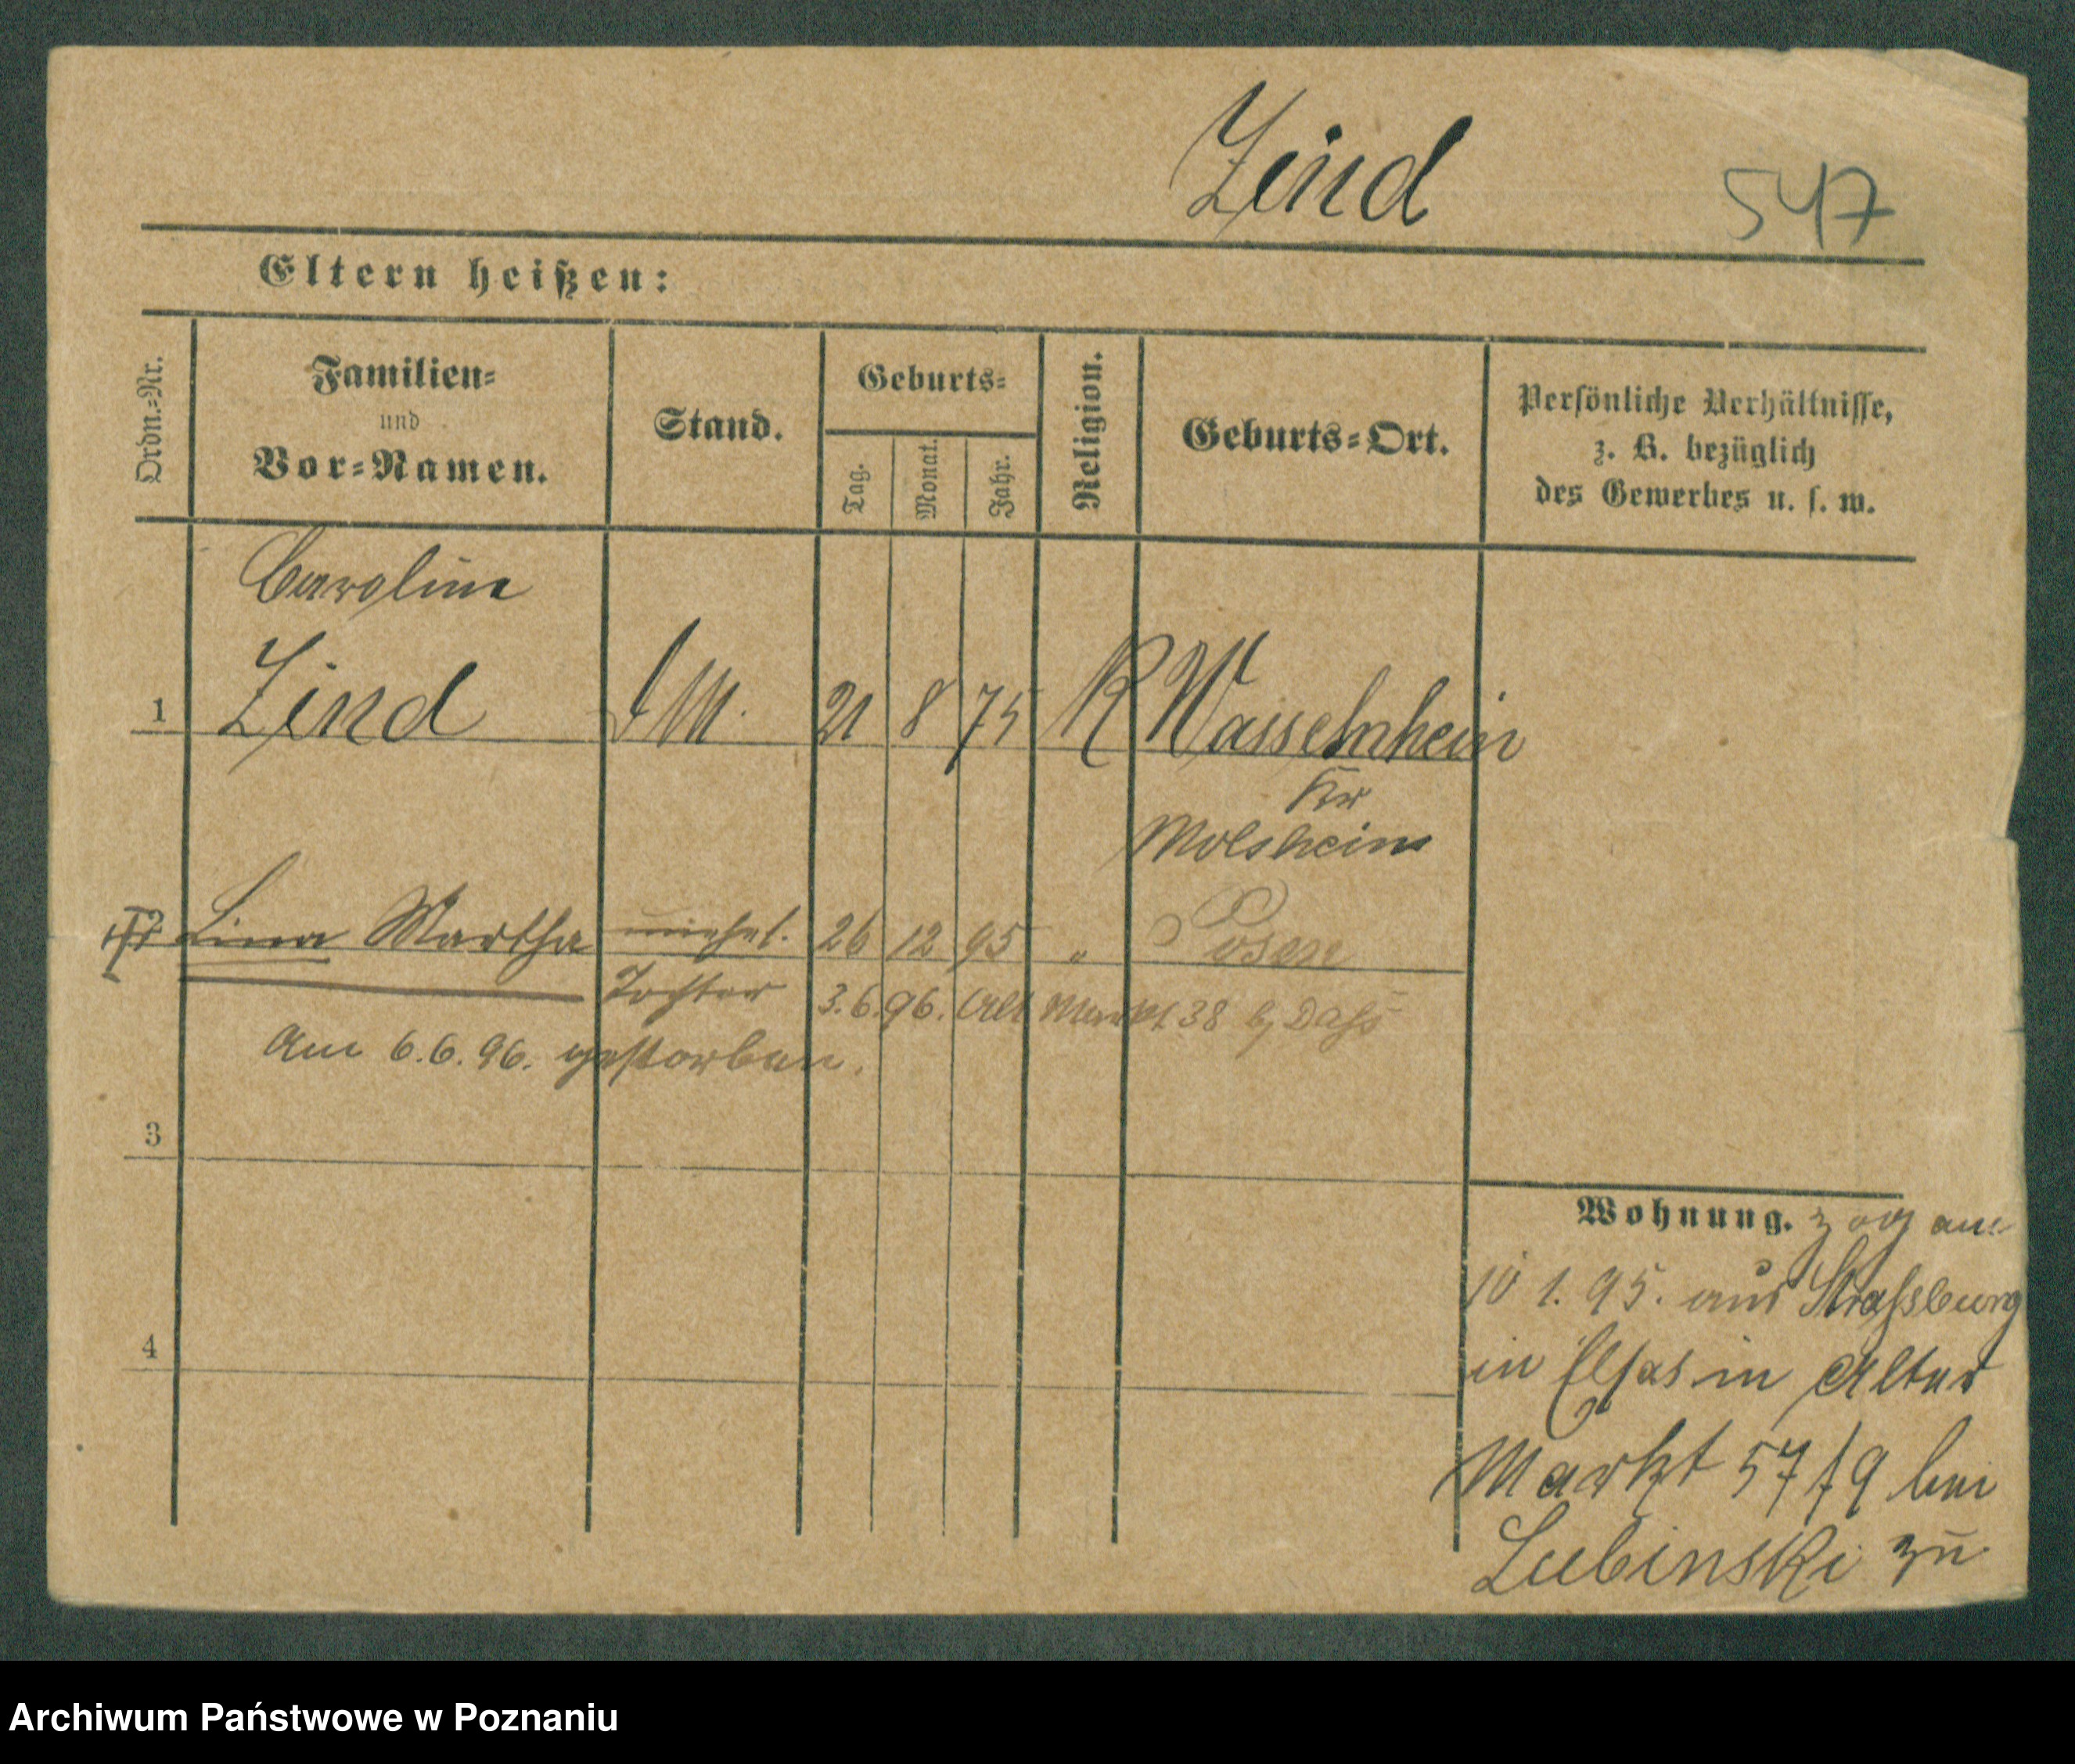 Zind
547
Eltern heißen:
Ordn.-Nr.
Familien-
und
Vor-Namen.
Stand.
Geburts-
Tag.
Monat.
Jahr.
Religion.
Geburts-Ort.
Persönliche Verhältnisse,
z. B. bezüglich
des Gewerbes u. s. w.
Caroline
1 Zind 21 8 75 K Wasselnheim
Kr
Molsheim
2 Lina Martha unehel. 26 12 95 " Posen
Tochter 3.6.96. Alt Markt 38 b, Daſs
Am 6.6.96. gestorben.
3
4
Wohnung. zog am
10 1. 95. aus Straſsburg
in Elsas in Alter
Markt 57/9 bei
Lubinski zu
Archiwum Państwowe w Poznaniu